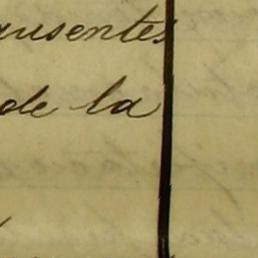 ausentes
de la